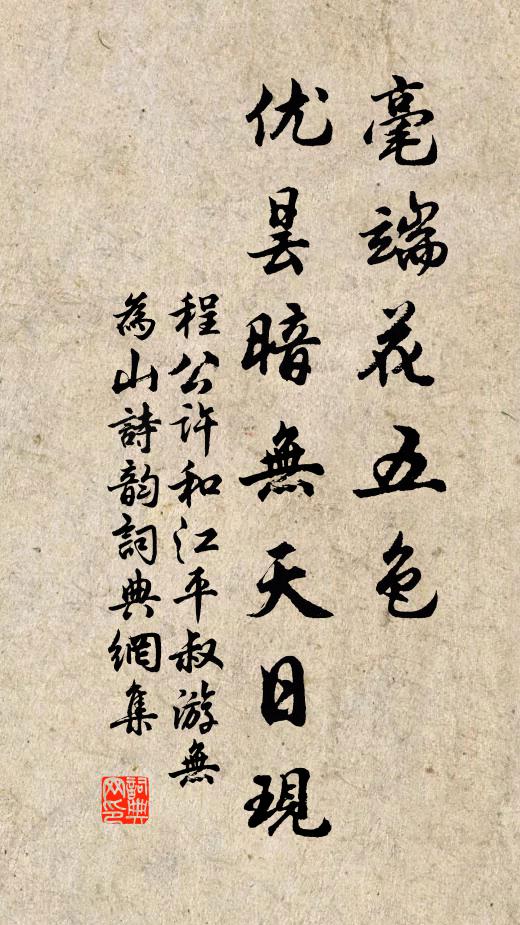 毫端花五色
优昙暗無天日現
程公许和江平叔游無
為山詩韵詞典網集
詞典
网印